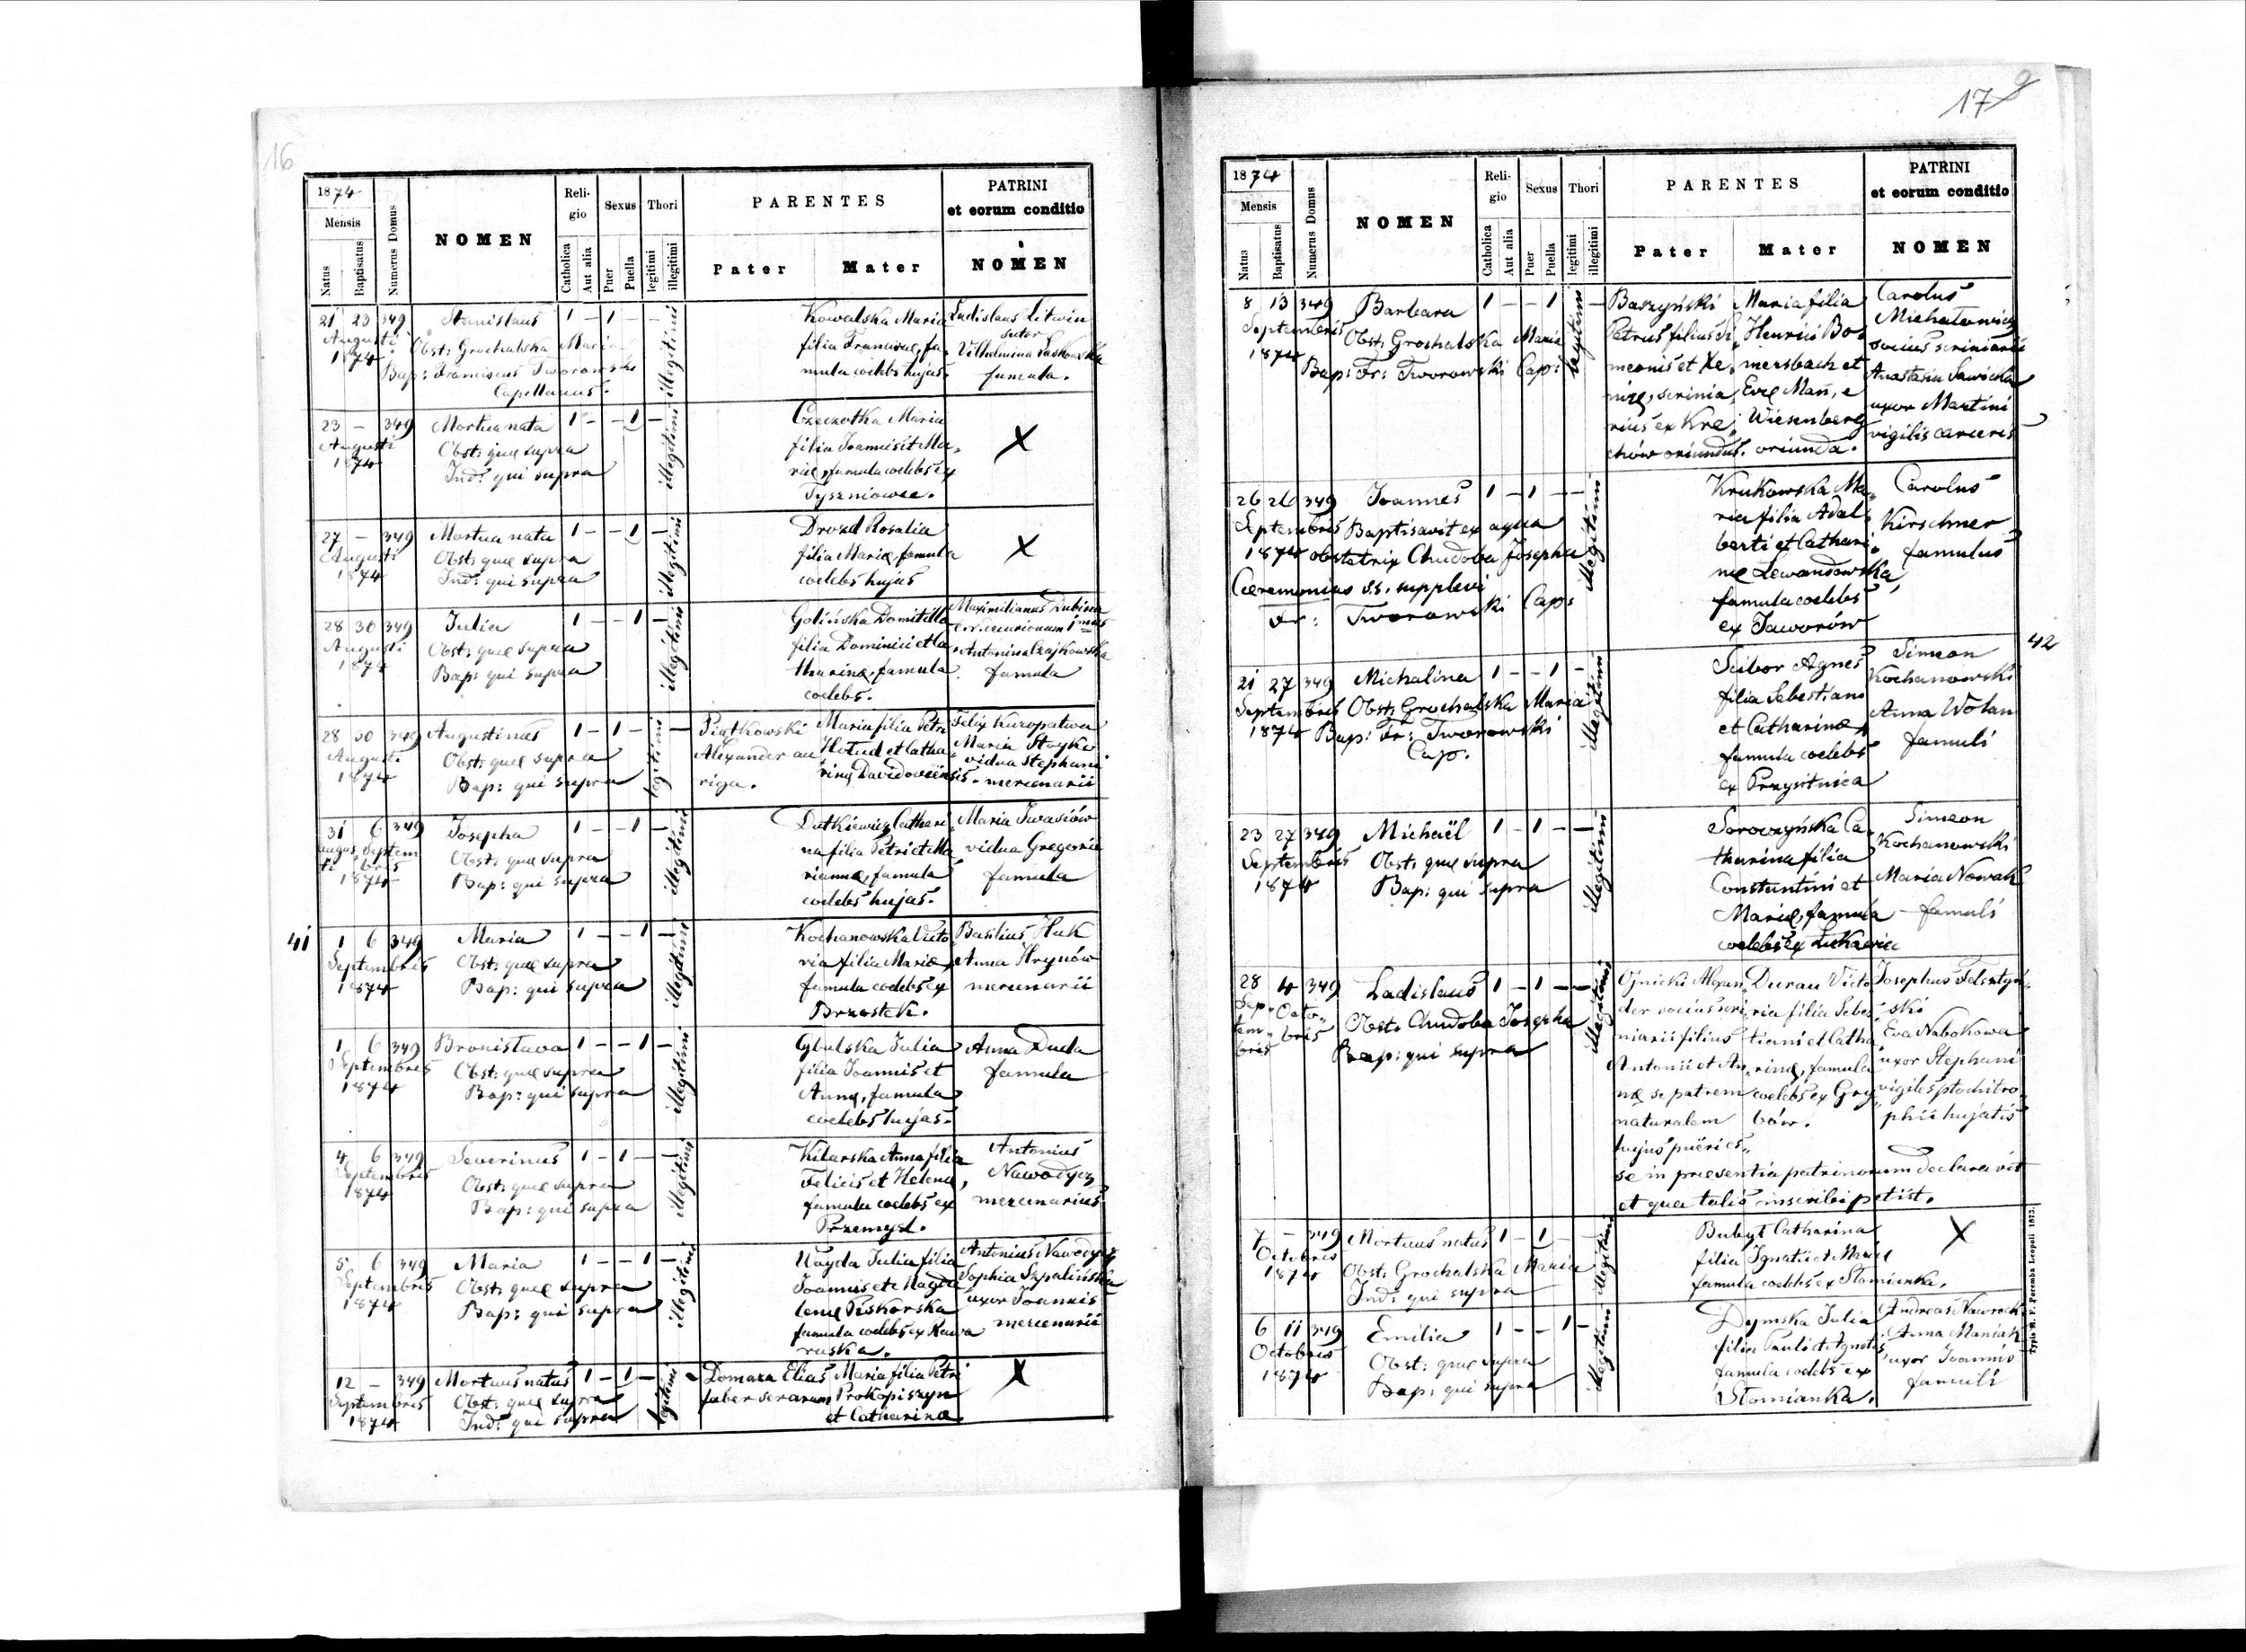 16
1874
Mensis
Natus
Baptisatus
Numerus Domus
NOMEN
Reli-
gio
Catholica
Aut alia
Sexus
Puer
Puella
Thori
legitimi
illegitimi
PARENTES
Pater
Mater
PATRINI
et eorum conditio
NOMEN
21 23 349 Stanislaus 1 - 1 - - illegitimi Kowalska Maria Ladislaus Litwin
Augusti Obst: Grochalska Maria filia Franciscæ, fa- sutor
1874 Bap: Franciscus Tworowski mula coelebs hujas. Vilhelmina
Capellanus. famula.
23 - 349 Mortua nata 1 - - 1 - illegitimi Czeczotka Maria X
Augusti Obst: quæ supra filia Joannis et Ma-
1874 Ind: qui supra riæ, famula coelebs ex
Tyszniowce.
27 - 349 Mortua nata 1 - - 1 - illegitimi Drozd Rosalia X
Augusti Obst: quæ supra filia Mariæ, famula
1874 Ind: qui supra coelebs hujas
28 30 349 Julia 1 - - 1 - illegitimi Golińska Domitilla Maximilianus Dubina
Augusti Obst: quæ supra filia Dominici et Ca
1874 Bap: qui supra tharinæ, famula Antonina Czajkowska
coelebs. famula
28 30 349 Augustinus 1 - 1 - legitimi - Piątkowski Maria filia Petri Felix Kuropatwa
Augusti Obst: quæ supra Alexander au Hotud et Catha Maria Stoyko
1874 Bap: qui supra riga. rinæ Davidoviensis. vidua Stephani
mercenarii
31 6 349 Josepha 1 - - 1 - illegitimi Dutkiewicz Cathari Maria Iwasiów
Augus Septem Obst: quæ supra na filia Petri et Ma vidua Gregorii
ti bris Bap: qui supra riannæ, famula famula
1874 coelebs hujas.
41
1 6 349 Maria 1 - - 1 - illegitimi Kochanowska Victo Basilius Huk
Septembris Obst: quæ supra ria filia Mariæ, Anna Hrynów
1874 Bap: qui supra famula coelebs ex mercenarii
Brzostek.
1 6 349 Bronisława 1 - - 1 - illegitimi Gbulska Julia Anna Duda
Septembris Obst: quæ supra filia Joannis et famula
1874 Bap: qui supra Annæ, famula
coelebs hujas.
4 6 349 Severinus 1 - 1 - - illegitimi Kilarska Anna filia Antonius
Septembris Obst: quæ supra Felicis et Helenæ, Nawodycz
1874 Bap: qui supra famula coelebs ex mercenarius
Przemyśl.
5 6 349 Maria 1 - - 1 - illegitimi Wayda Julia filia Antonius Nawodycz
Septembris Obst: quæ supra Joannis et Magda Sophia Szpalińska
1874 Bap: qui supra lenæ Piskorska uxor Joannis
famula coelebs ex Rawa mercenarii
ruska.
12 - 349 Mortuus natus 1 - 1 - legitimi - Domaza Elias Maria filia Petri X
Septembris Obst: quæ supra faber serarum Prokopiszyn
1874 Ind: qui supra et Catharinæ
17
9
1874
Mensis
Natus
Baptisatus
Numerus Domus
NOMEN
Reli-
gio
Catholica
Aut alia
Sexus
Puer
Puella
Thori
legitimi
illegitimi
PARENTES
Pater
Mater
PATRINI
et eorum conditio
NOMEN
8 13 349 Barbara 1 - - 1 legitimi - Baszyński Maria filia Carolus
Septembris Obst: Grochalska Maria Petrus filius Si Henrici Bo- Michałowicz
1874 Bap: Fr: Tworowski Cap: meonis et Xe mersbach et socius scriniarii
niæ, scrinia Evæ Man, e Anastasia Sawicka
rius ex Kre Wiesenberg uxor Martini
chów oriundus. oriunda. vigilis carceris
26 26 349 Joannes 1 - 1 - - illegitimi Krukowska Ma Carolus
Septembris Baptisavit ex aqua ria filia Adal Kirschner
1874 obstetrix Chudoba Josepha berti et Cathari famulus
Cæremonias s.s. supplevi næ Lewandowska,
Fr: Tworowski Cap: famula coelebs
ex Jaworów
42
21 27 349 Michalina 1 - - 1 - illegitimi Scibor Agnes Simeon
Septembris Obst: Grochalska Maria filia Sebestiani Kochanowski
1874 Bap: Fr: Tworowski et Catharinæ, Anna Wołan
Cap. famula coelebs famuli
ex Przysitnica
23 27 349 Michaël 1 - 1 - - illegitimi Soroczyńska Ca Simeon
Septembris Obst: quæ supra tharina filia Kochanowski
1874 Bap: qui supra Constantini et Maria Nowak
Mariæ, famula famuli
coelebs ex Łukawiec
28 4 349 Ladislaus 1 - 1 - - illegitimi Ojnicki Alexan Durau Victo Josephus Felsztyń
Sep- Octo- Obst: Chudoba Josepha der socius scri ria filia Sebes ski
tem- bris Bap: qui supra niarii filius tiani et Catha Eva Nabokowa
bris Antonii et An rinæ, famula uxor Stephani
næ se patrem coelebs ex Gry vigilis ptochotro
naturalem bów. phii hujatis
hujus pueri es-
se in præsentia patrinorum declaravit
et qua talis inscribi petiit.
7 - 349 Mortuus natus 1 - 1 - - illegitimi Bubyt Catharina X
Octobris Obst: Grochalska Maria filia Ignatii et Mariæ
1874 Ind: qui supra famula coelebs ex Słomianka.
6 11 349 Emilia 1 - - 1 - illegitimi Dymska Julia Andreas Nawrocki
Octobris Obst: quæ supra filia Pauli et Agnetis, Anna Maniak
1874 Bap: qui supra famula coelebs ex uxor Joannis
Słomianka. famuli
Typis H. F. Poremba Leopoli 1873.